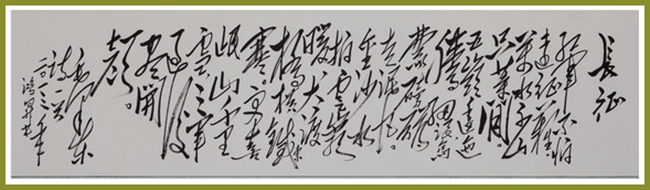 長征
紅軍不怕
遠征難
萬水千山
只等閒
五嶺逶迤
騰細浪烏
蒙磅礴
走泥丸。
金沙水
拍雲崖
暖大渡
橋橫鐵索
寒更喜
岷山千里
雪三軍
過後
盡開
顏。
毛澤東
詩一首
二〇一三年